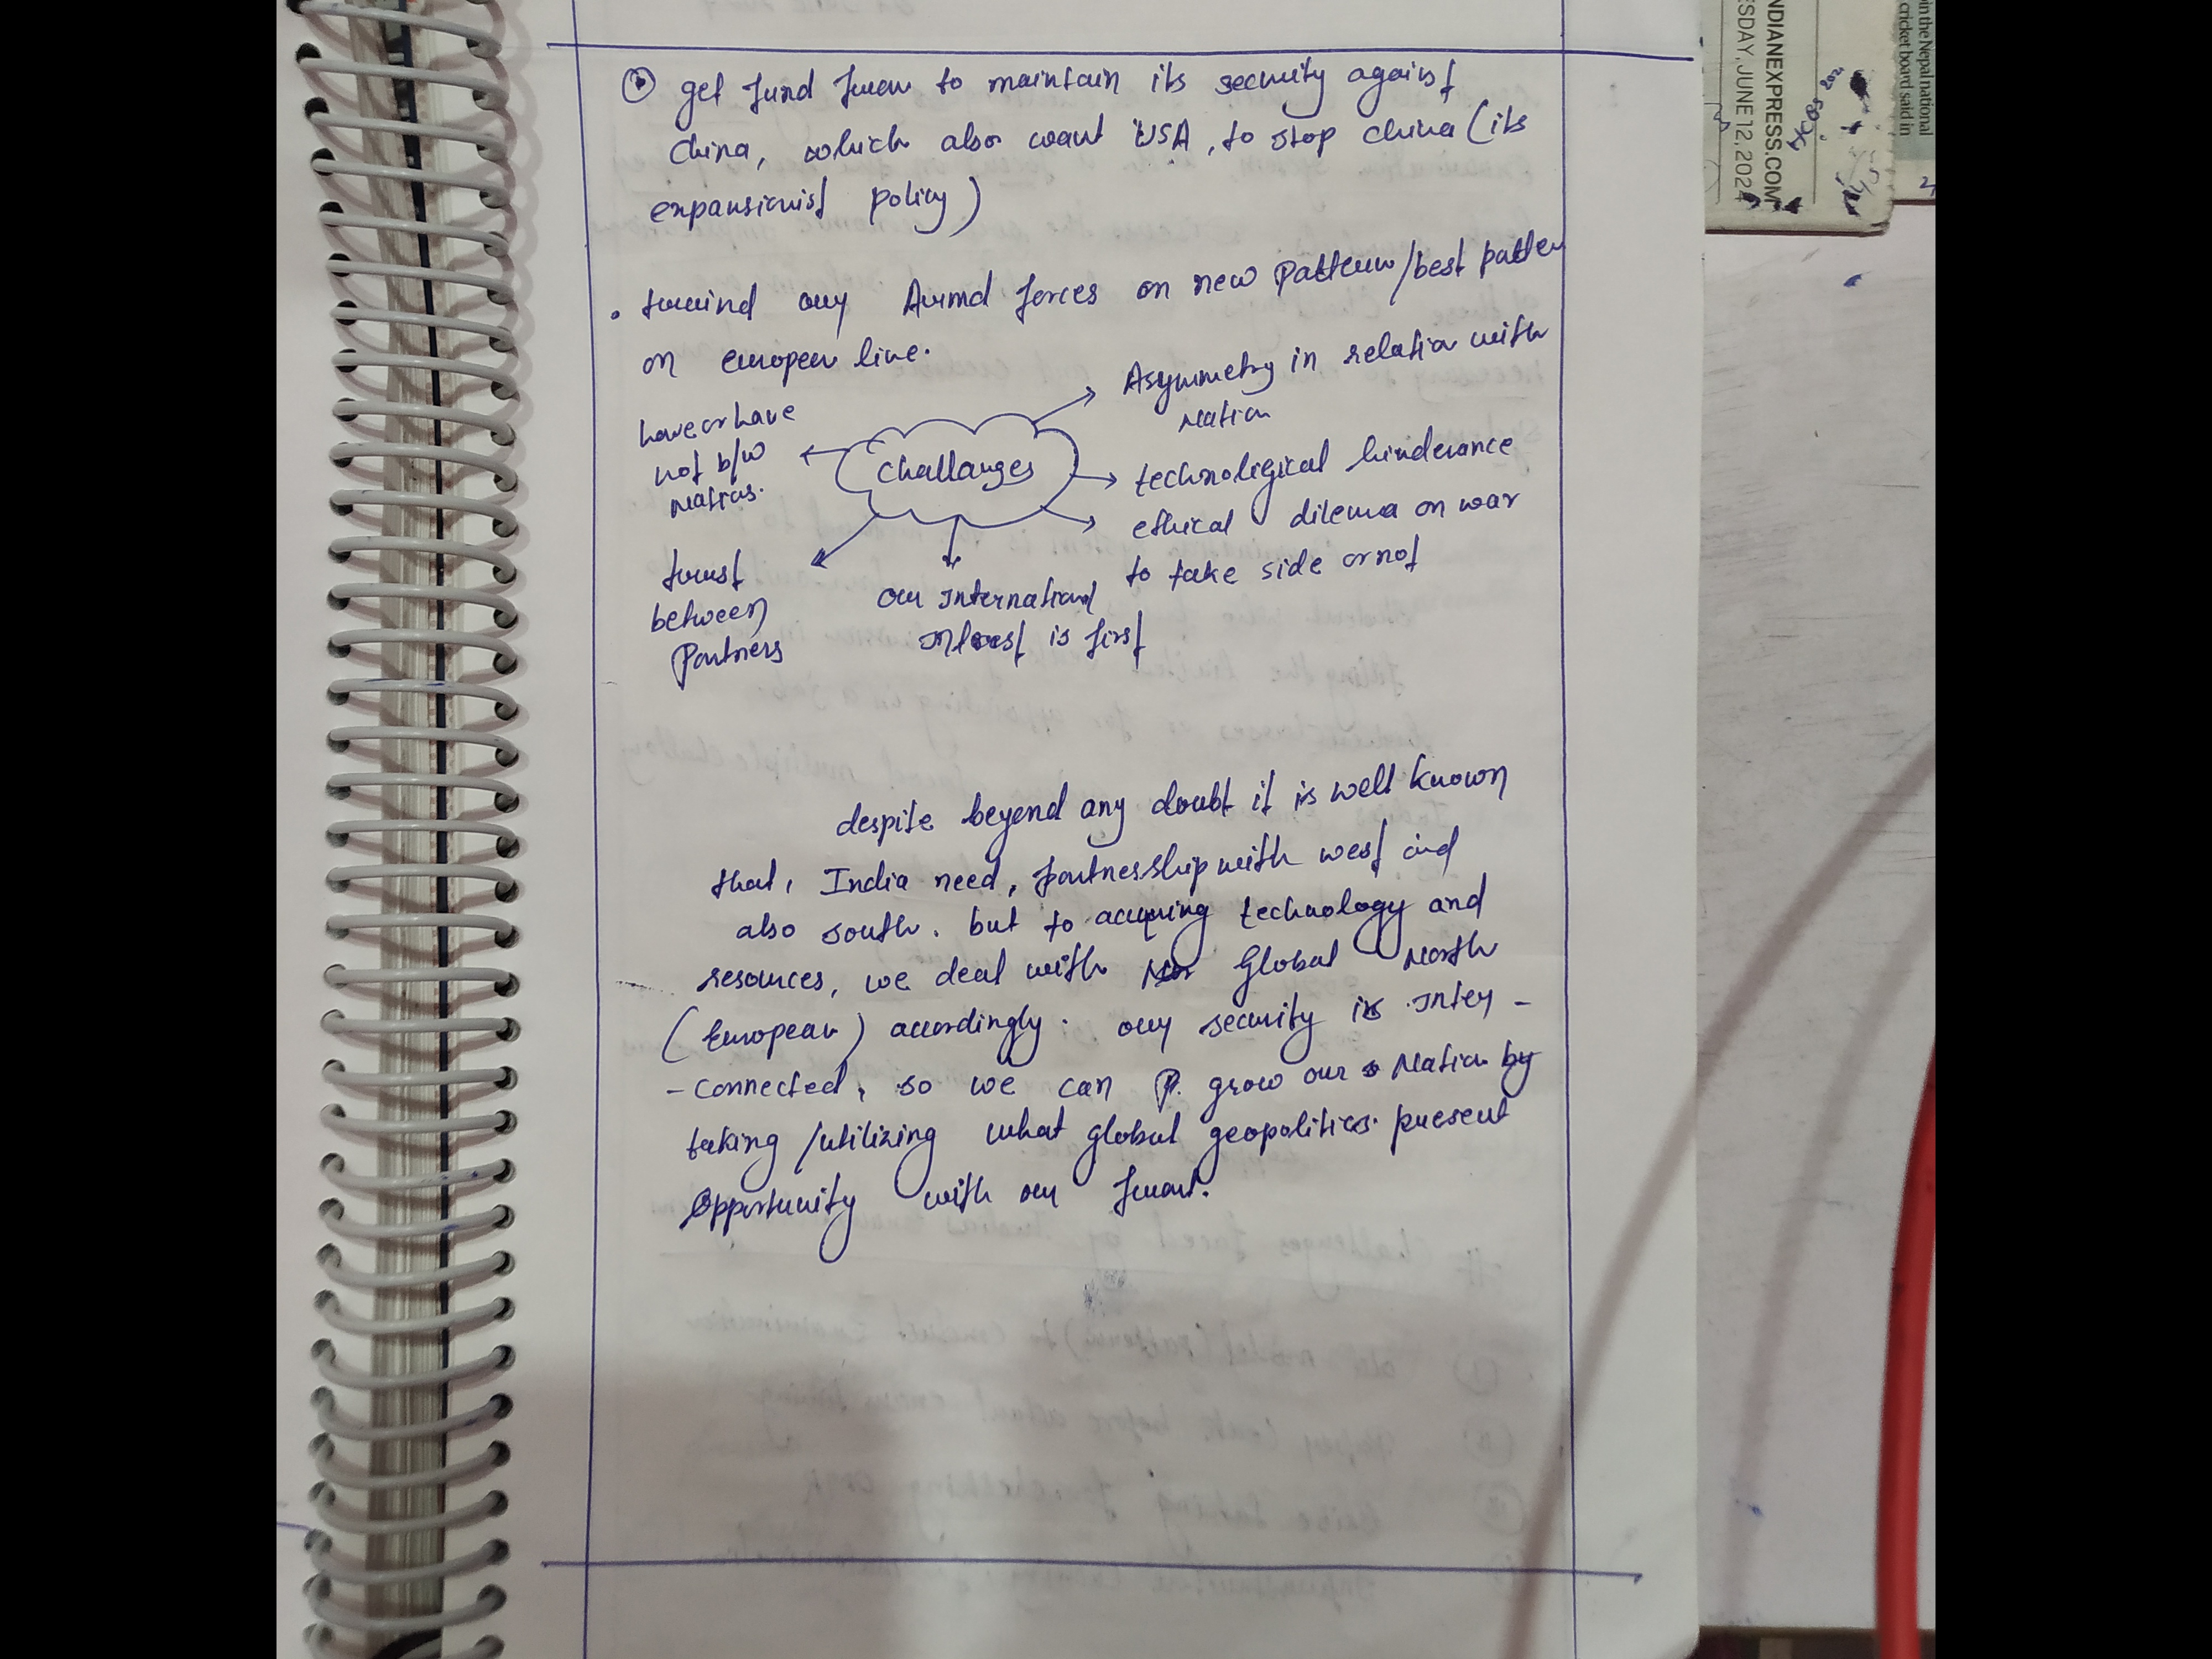 get fund from to maintain its security against
china, which also want USA, to stop china (its
expansionist policy)
. our Armd forces on new Pattern/best pattern
on european line.
Asymmetry in relation with
Nation
have or have
not b/w
Nations.
challanges
technoligical hinderance
ethical dilema on war
to take side or not
trust
between
Partners
our International
Interest is first
despite beyond any doubt it is well known
that, India need, partnership with west and
also south. but to acquring technology and
resources, we deal with Global North
(European) accordingly. our security is Inter -
- connected, so we can grow our Nation by
taking /utilizing what global geopolitics. present
Opportunity with our
INDIANEXPRESS.COM
ESDAY, JUNE 12, 2024
in the Nepal national
cricket board said in